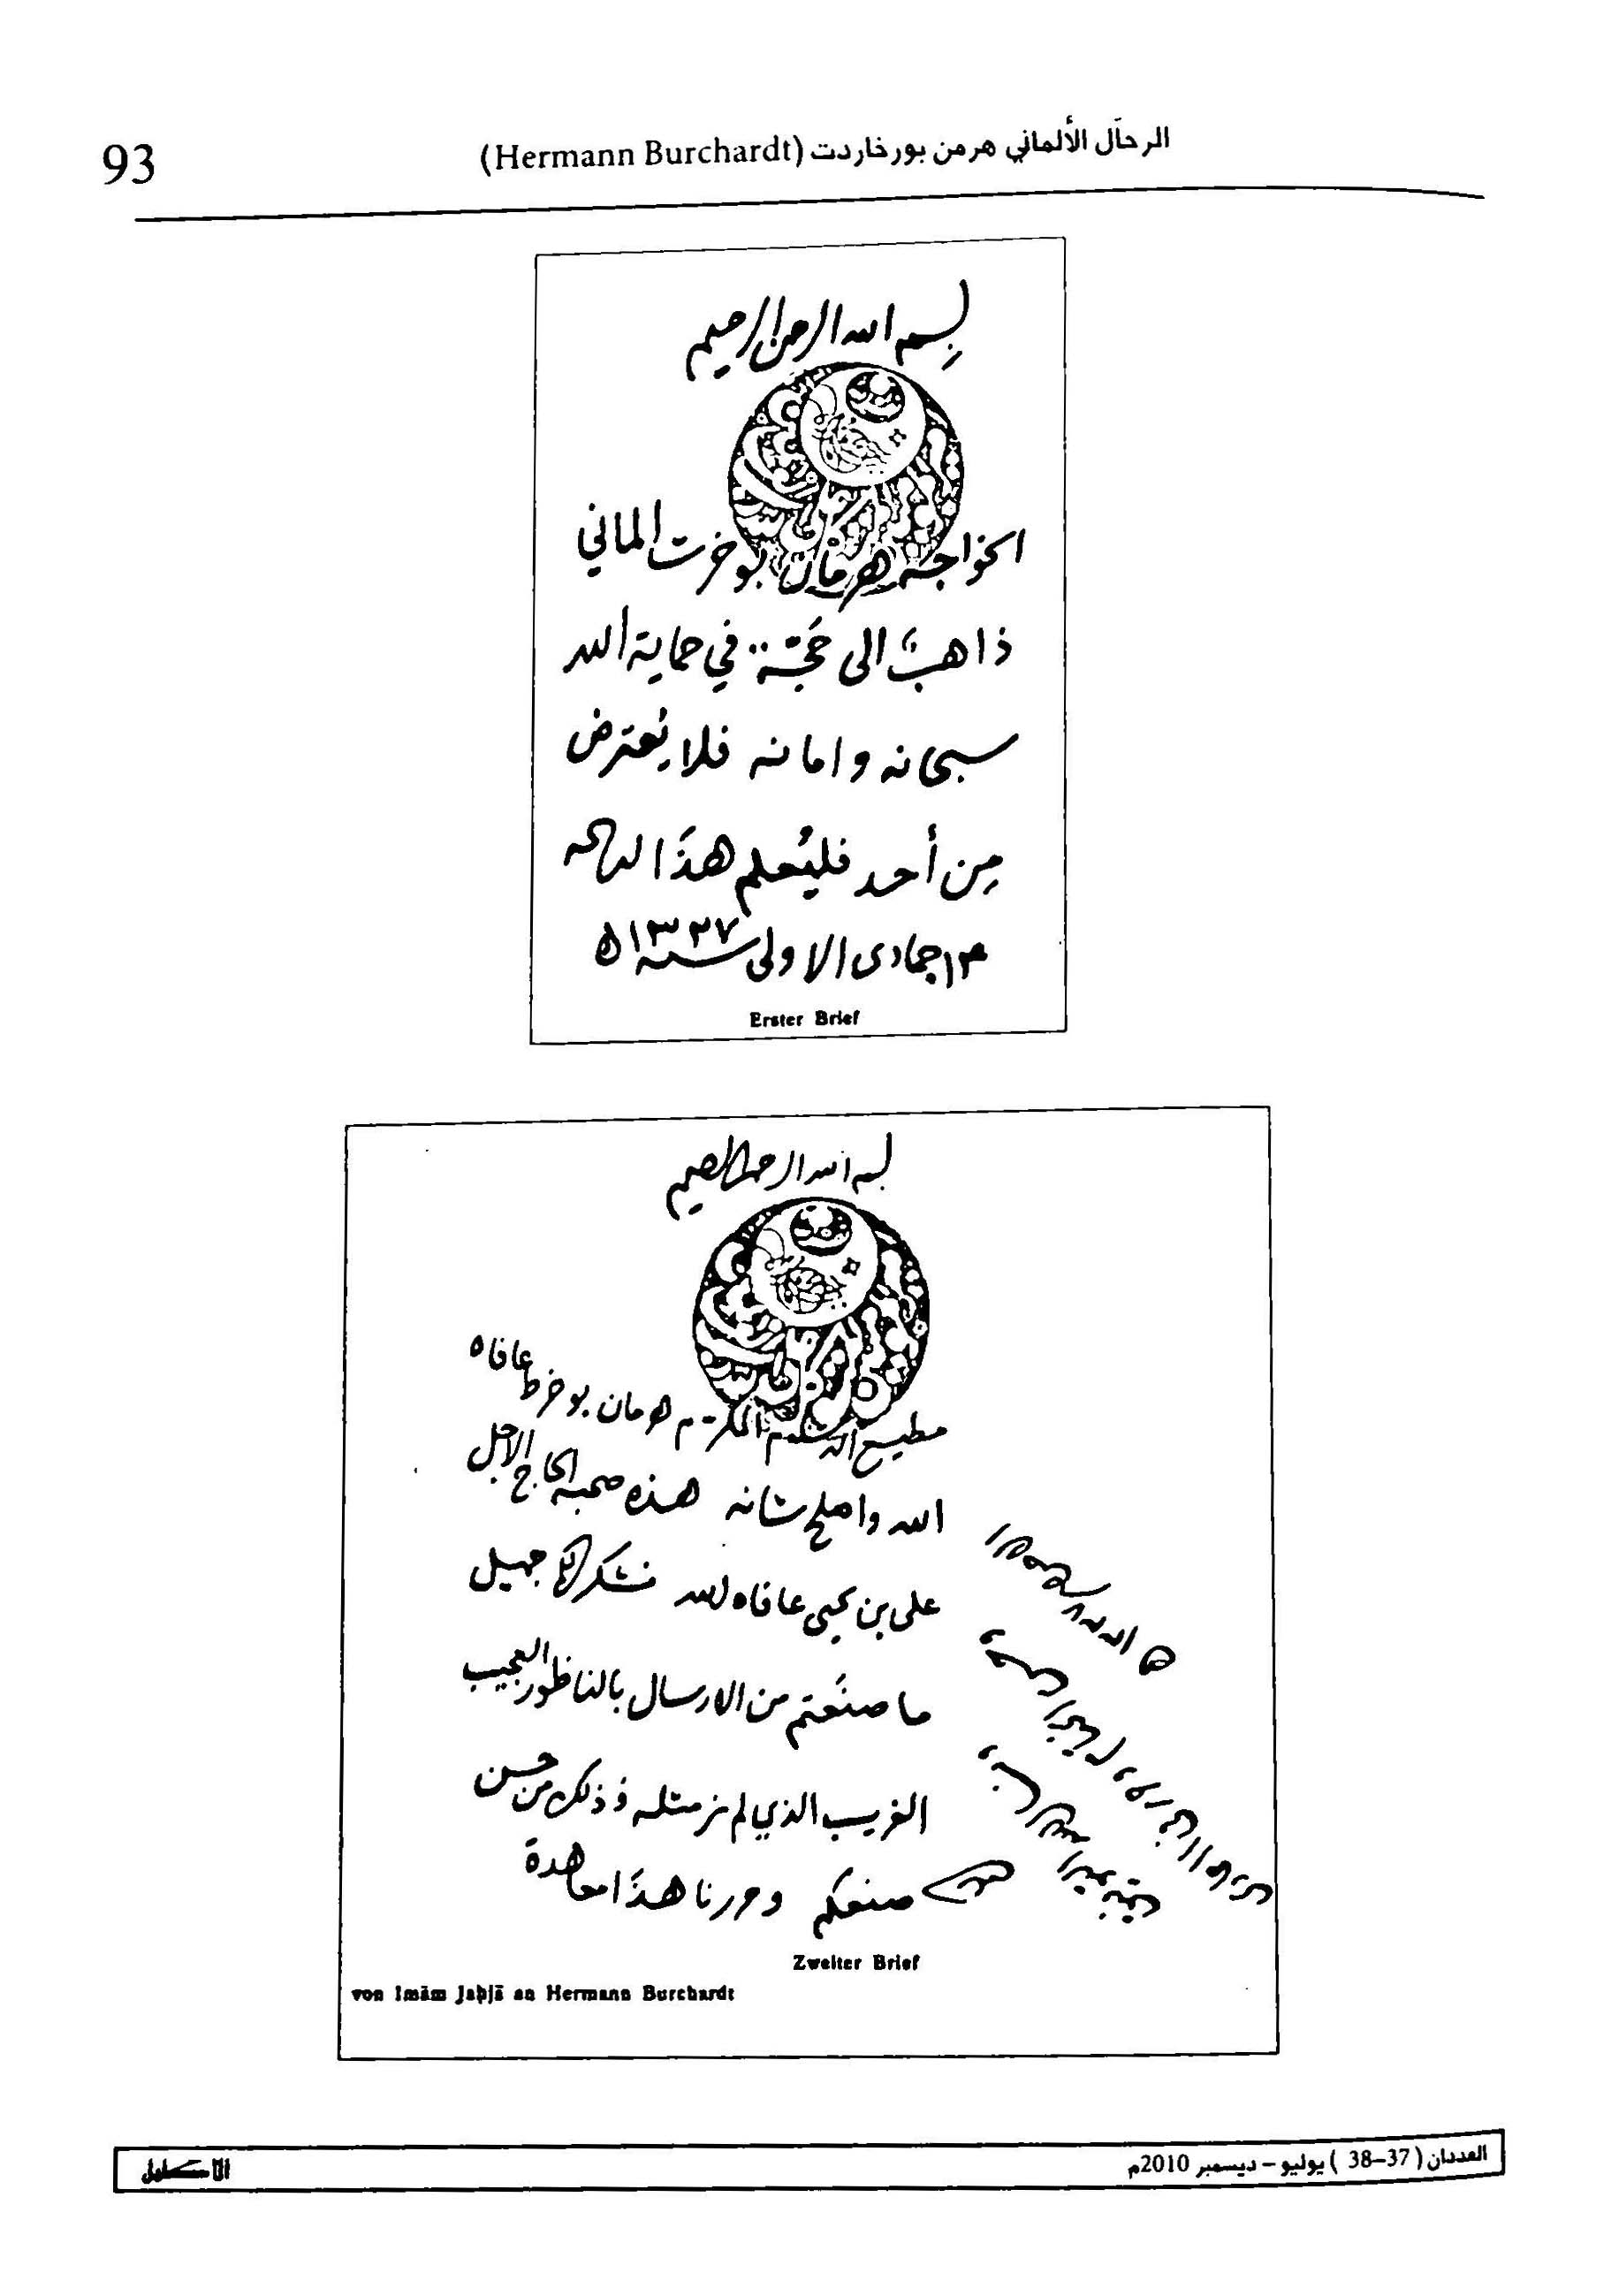 الرحال الألماني هرمن بورخاردت (Hermann Burchardt)
93
بسم الله الرحمن الرحيم
الخواجه هرمان بوخرت الماني
ذاهب الى حَجّة .. في حماية الله
سبحانه وامانه فلا يُعترض
مِن أحد فليُعلم هذا
١٣ جمادى الاولى سنه ١٣٢٧ ه
Erster Brief
بسم الله الرحمن الرحيم
المكرّم هرمان بوخرط عافاه
الله واصلح شانه هذه صحبة الحاج الاجل
علي بن يحيى عافاه الله نشكر لكم جميل
ما صنَعتم من الارسال بالناظور العجيب
الغريب الذي لم نر مثله وَذلك من حسن
صنعكم وحررنا هذا معاهدة
Zweiter Brief
von Imām Jaḥjā an Hermann Burchardt
العددان (37-38) يوليو - ديسمبر 2010م
الإكليل